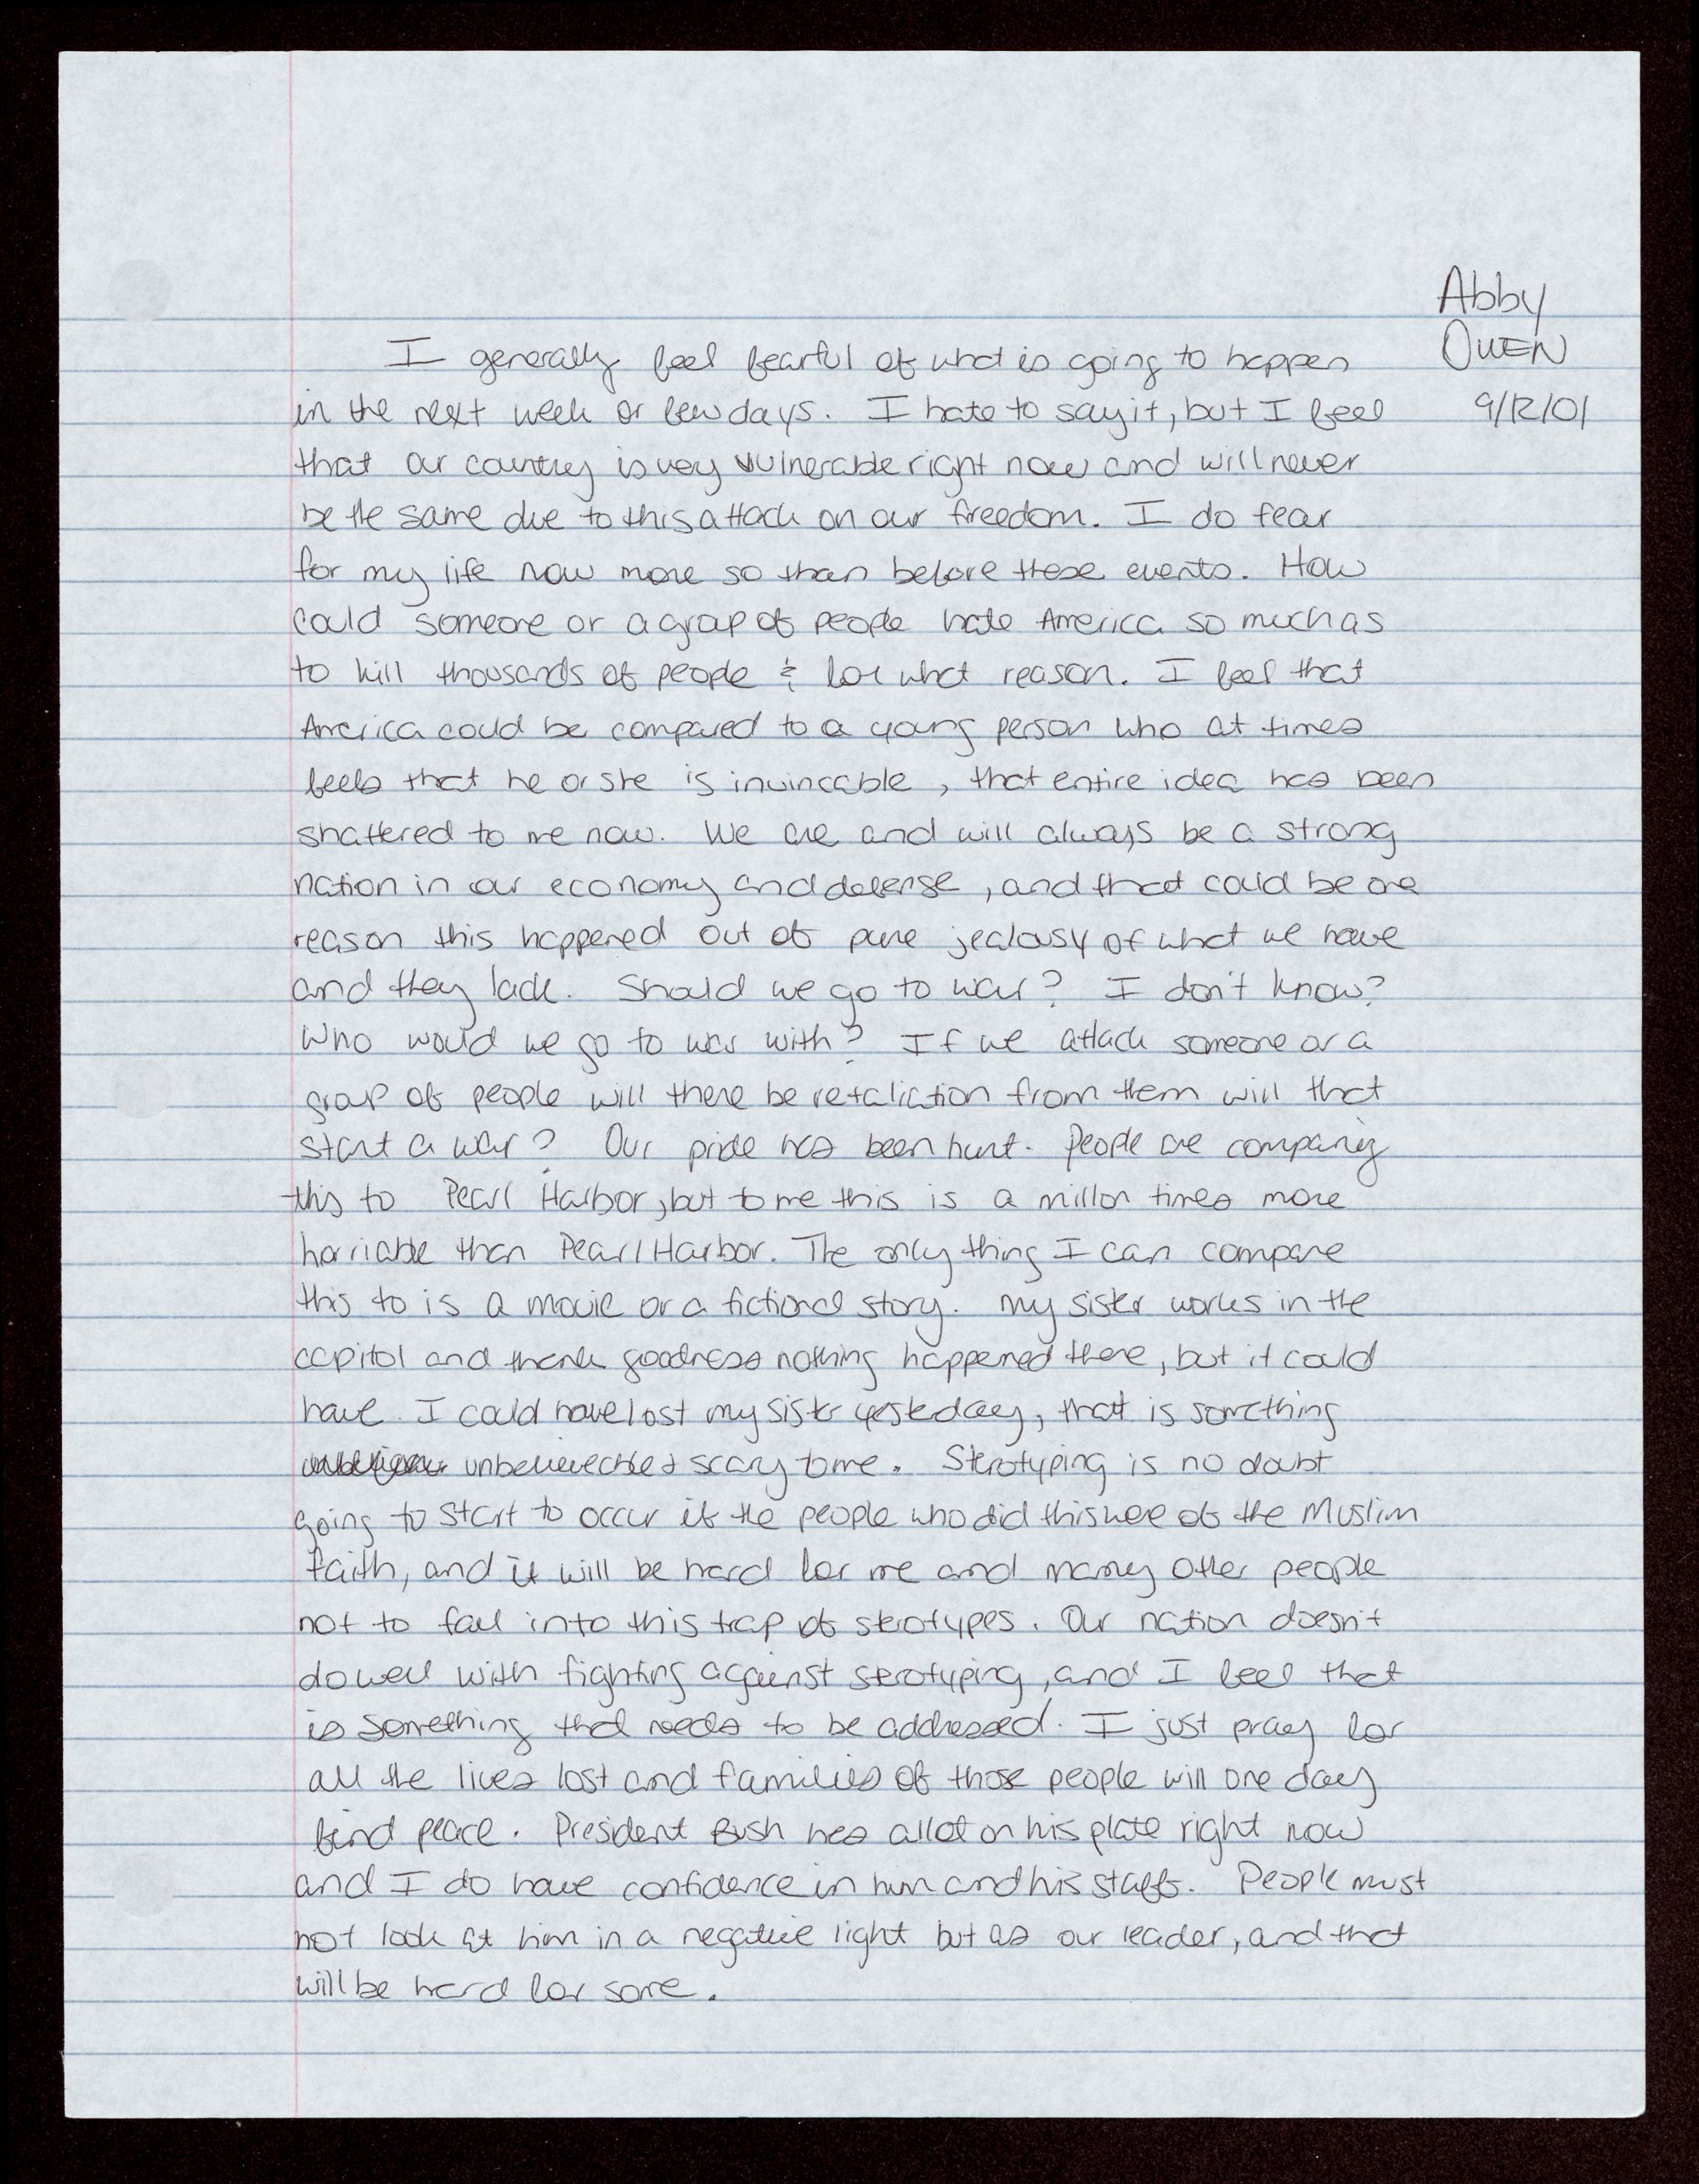 Abby
OWEN
9/12/01
I generally feel fearful of what is going to happen
in the next week or few days. I hate to say it, but I feel
that our country is very vulnerable right now and will never
be the same due to this attack on our freedom. I do fear
for my life now more so than before these events. How
could someone or a group of people hate America so much as
to kill thousands of people & for what reason. I feel that
America could be compared to a young person who at times
feels that he or she is invincable, that entire idea has been
shattered to me now. We are and will always be a strong
nation in our economy and defense, and that could be one
reason this happened out of pure jealousy of what we have
and they lack. Should we go to war? I don't know?
Who would we go to war with? If we attack someone or a
group of people will there be retaliation from them will that
start a war? Our pride has been hurt. People are comparing
this to Pearl Harbor, but to me this is a millon times more
horriable than Pearl Harbor. The only thing I can compare
this to is a movie or a fictional story. My sister works in the
capitol and thank goodness nothing happened there, but it could
have. I could have lost my sister yesterday, that is something
unbelieveable & scary to me. Sterotyping is no doubt
going to start to occur if the people who did this were of the Muslim
faith, and it will be hard for me and many other people
not to fall into this trap of sterotypes. Our nation doesn't
do well with fighting against sterotyping, and I feel that
is something that needs to be addressed. I just pray for
all the lives lost and families of those people will one day
find peace. President Bush has allot on his plate right now
and I do have confidence in him and his staff. People must
not look at him in a negative light but as our leader, and that
will be hard for some.